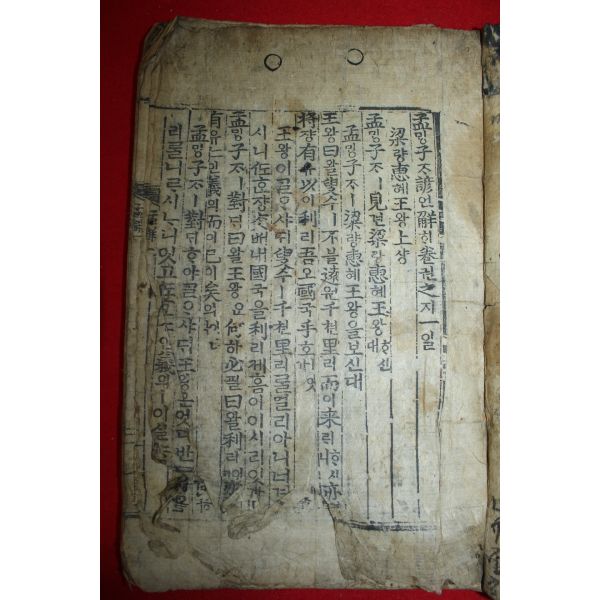 孟밍子ᄌᆞ諺언解ᄒᆡ卷권之지一일
梁량惠혜王왕上샹
孟밍子ᄌᆞㅣ見견梁량惠혜王왕ᄒᆞ신대
孟밍子ᄌᆞㅣ梁량惠혜王왕을보신대
王왕曰왈叟수ㅣ不블遠원千쳔里리而이來ᄅᆡᄒᆞ시니亦
將쟝有유以이利리吾오國국乎호잇
王왕이ᄀᆞᆯᄋᆞ샤ᄃᆡ叟수ㅣ千쳔里리ᄅᆞᆯ멀리아니너기
시니 쟝ᄎᆞᆺ내國국을利리케홈이이시리잇가
孟밍子ᄌᆞㅣ對ᄃᆡ曰왈王왕은何하必필曰왈利리잇
有유仁인義의而이已이矣의
孟밍子ᄌᆞㅣ對ᄃᆡᄒᆞ야ᄀᆞᆯᄋᆞ샤ᄃᆡ王왕은엇디반
리ᄅᆞᆯ니ᄅᆞ시ᄂᆞ니잇고 義의ㅣ이실